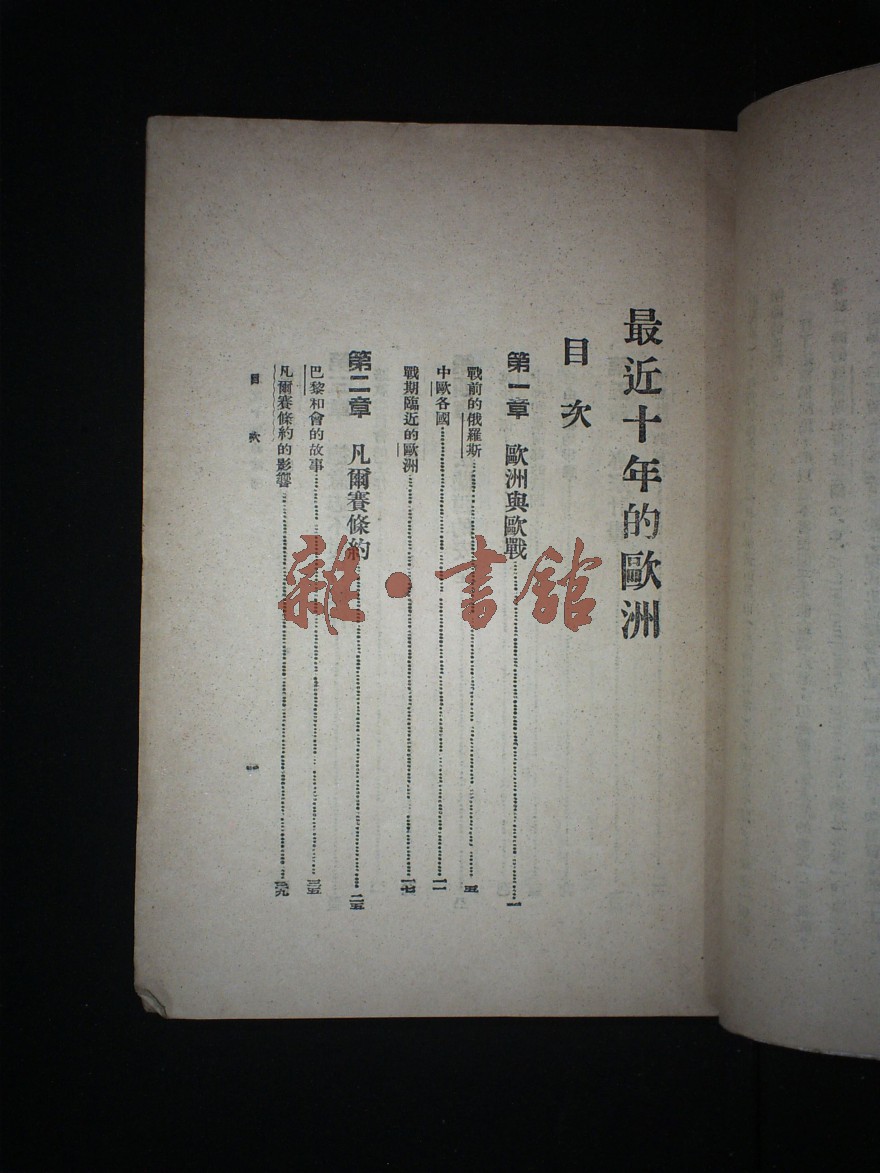 最近十年的歐洲
目次
第一章 歐洲與歐戰……一
戰前的俄羅斯……五
中歐各國……一一
戰期臨近的歐洲……一七
第二章 凡爾賽條約……二五
巴黎和會的故事……三五
凡爾賽條約的影響……九
目次 一
雜·書館